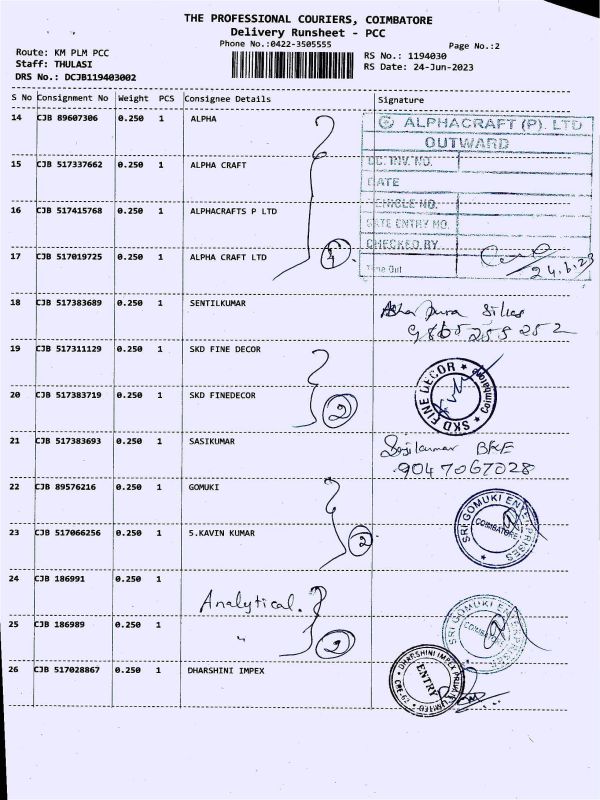 THE PROFESSIONAL COURIERS, COIMBATORE
Delivery Runsheet - PCC
Phone No.:0422-3505555
Page No.:2
Route: KM PLM PCC
Staff: THULASI
DRS No.: DCJB119403002
RS No.: 1194030
RS Date: 24-Jun-2023
S No Consignment No Weight PCS Consignee Details Signature
14 CJB 89607306 0.250 1 ALPHA
15 CJB 517337662 0.250 1 ALPHA CRAFT
16 CJB 517415768 0.250 1 ALPHACRAFTS P LTD
17 CJB 517019725 0.250 1 ALPHA CRAFT LTD
4
ALPHACRAFT (P). LTD
OUTWARD
DC. INV. NO.
DATE
VEHICLE NO.
GATE ENTRY NO.
CHECKED BY
Time Out
24.6.23
18 CJB 517383689 0.250 1 SENTILKUMAR
9865 255 252
19 CJB 517311129 0.250 1 SKD FINE DECOR
20 CJB 517383719 0.250 1 SKD FINEDECOR
2
SKD FINE DECOR
Coimbatore
21 CJB 517383693 0.250 1 SASIKUMAR
Sasikumar
9047067028
22 CJB 89576216 0.250 1 GOMUKI
23 CJB 517066256 0.250 1 S.KAVIN KUMAR
2
SRI GOMUKI ENTERPRISES
COIMBATORE
24 CJB 186991 0.250 1
Analytical.
25 CJB 186989 0.250 1 "
2
SRI GOMUKI ENTERPRISES
26 CJB 517028867 0.250 1 DHARSHINI IMPEX
DHARSHINI IMPEX PRIVATE LIMITED
ENTRY